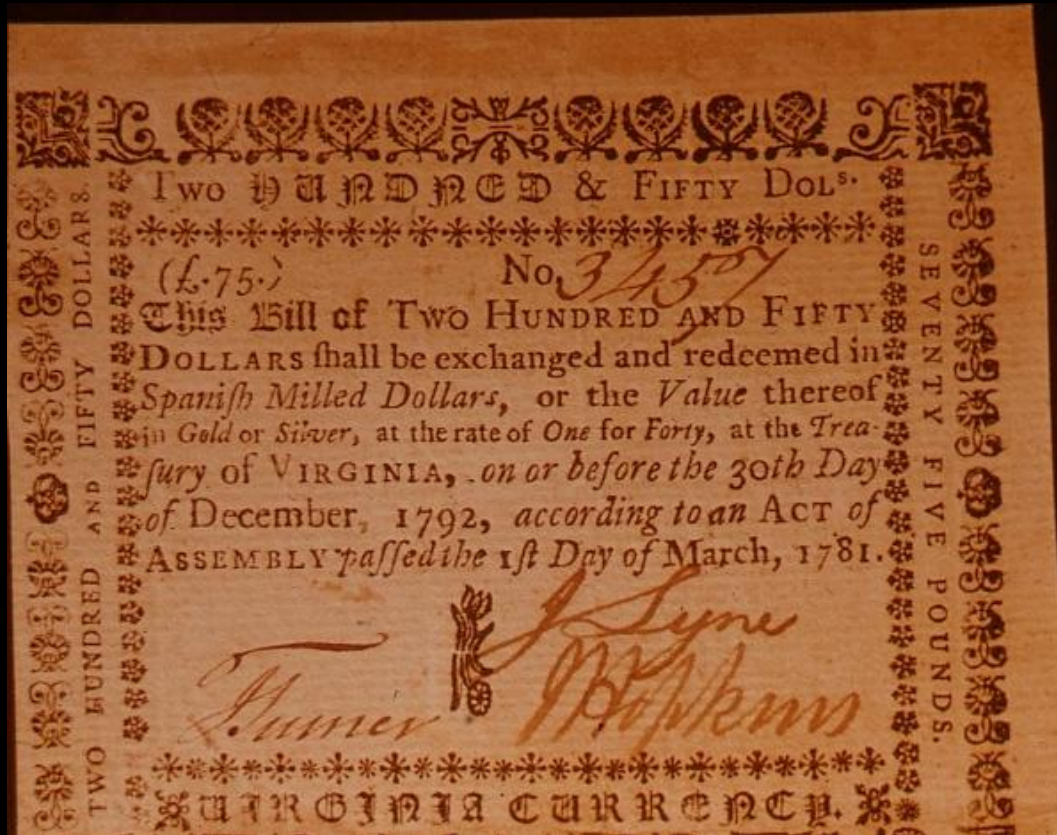 Two HUNDRED & FIFTY DOLs.
(£.75.) No. 3457
This Bill of TWO HUNDRED AND FIFTY
DOLLARS ſhall be exchanged and redeemed in
Spaniſh Milled Dollars, or the Value thereof
in Gold or Silver, at the rate of One for Forty, at the Trea-
ſury of VIRGINIA, on or before the 30th Day
of December, 1792, according to an ACT of
ASSEMBLY paſſed the 1ſt Day of March, 1781.
J Lyne
Turner
Hopkins
VIRGINIA CURRENCY.
TWO HUNDRED AND FIFTY DOLLARS.
SEVENTY FIVE POUNDS.